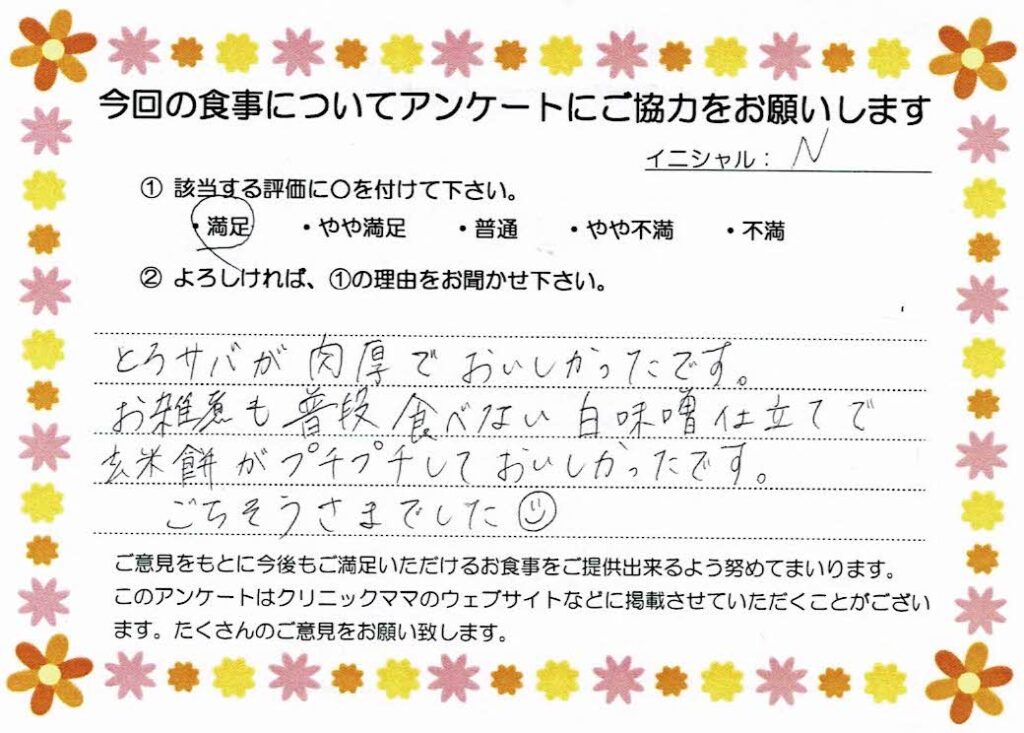 今回の食事についてアンケートにご協力をお願いします
イニシャル： N
① 該当する評価に〇を付けて下さい。
・満足 ・やや満足 ・普通 ・やや不満 ・不満
② よろしければ、①の理由をお聞かせ下さい。
とろサバが肉厚でおいしかったです。
お雑煮も普段食べない白味噌仕立てで
玄米餅がプチプチしておいしかったです。
ごちそうさまでした
ご意見をもとに今後もご満足いただけるお食事をご提供出来るよう努めてまいります。
このアンケートはクリニックママのウェブサイトなどに掲載させていただくことがござい
ます。たくさんのご意見をお願い致します。